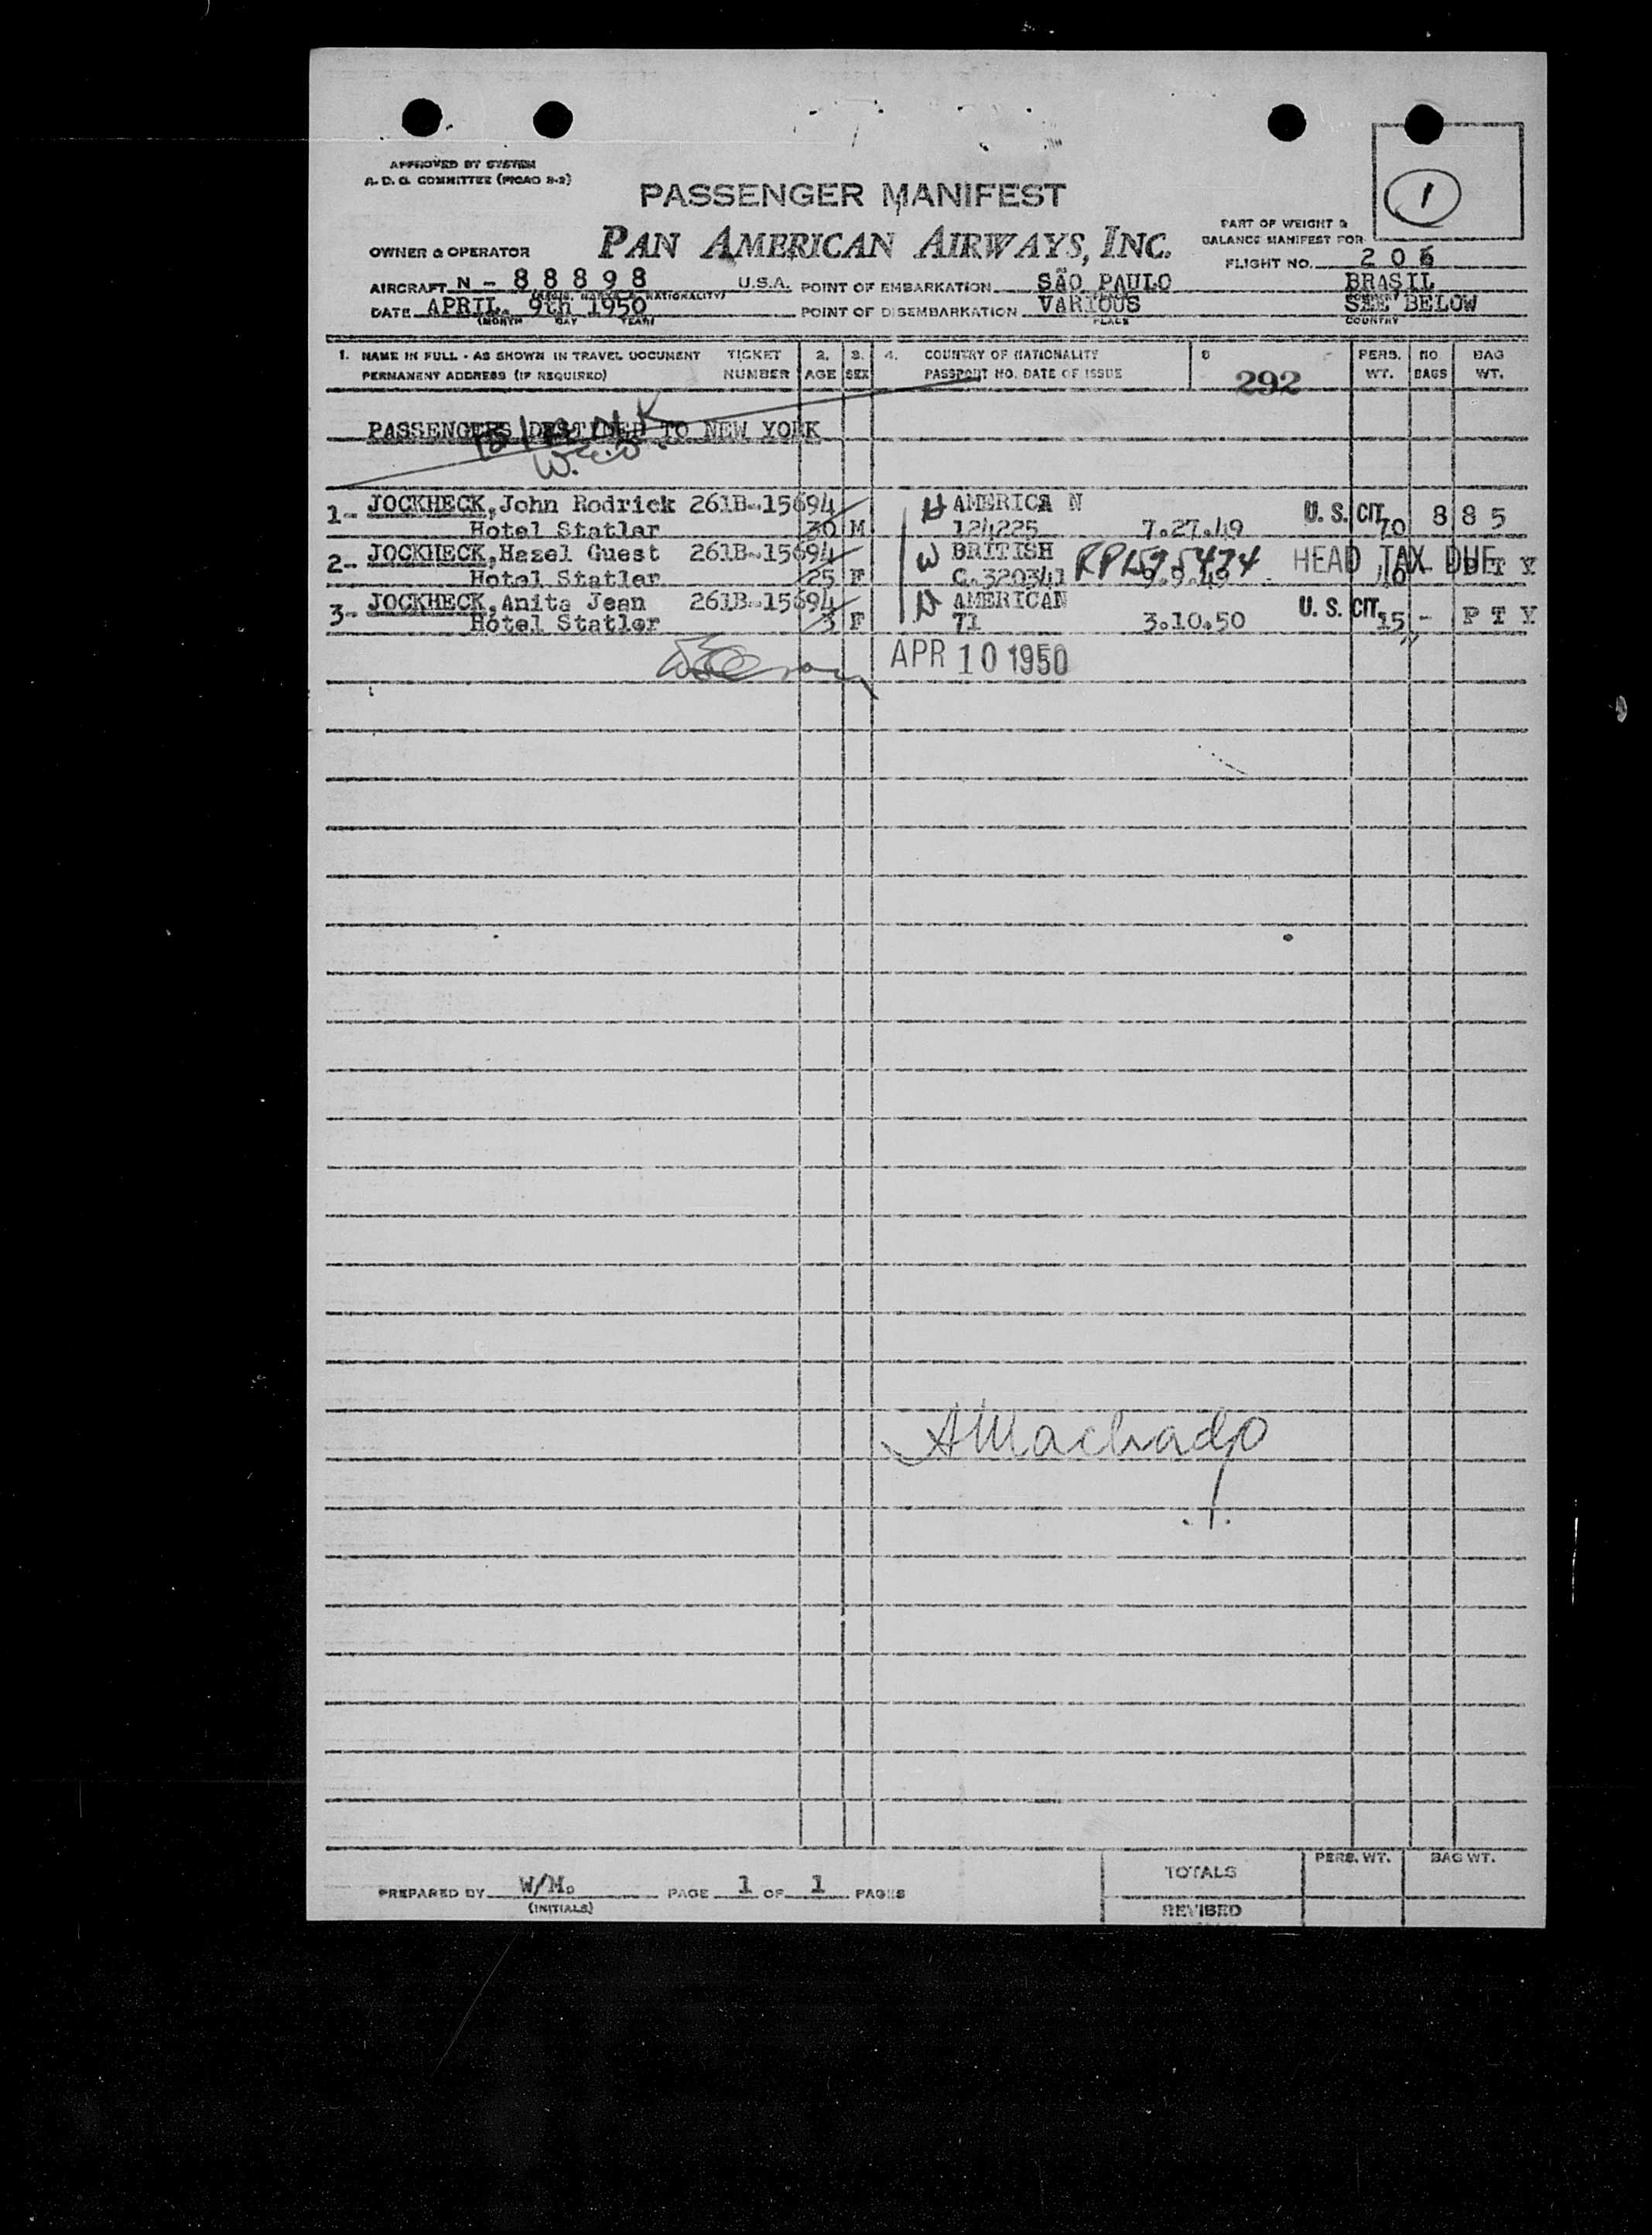 APPROVED BY SYSTEM
A. D. G. COMMITTEE (PICAO 8-2)
PASSENGER MANIFEST
1
PART OF WEIGHT &
BALANCE MANIFEST FOR
OWNER & OPERATOR PAN AMERICAN AIRWAYS, INC.
FLIGHT NO. 206
AIRCRAFT N - 88898 U.S.A. POINT OF EMBARKATION SÃO PAULO BRASIL
DATE APRIL. 9th 1950 POINT OF DISEMBARKATION VARIOUS SEE BELOW
(MONTH DAY YEAR) PLACE COUNTRY
1. NAME IN FULL - AS SHOWN IN TRAVEL DOCUMENT TICKET 2. 3. 4. COUNTRY OF NATIONALITY PERS. NO. BAG
PERMANENT ADDRESS (IF REQUIRED) NUMBER AGE SEX PASSPORT NO. DATE OF ISSUE 292 WT. BAGS WT.
PASSENGERS DESTINED TO NEW YORK
1- JOCKHECK, John Rodrick 261B-15694 AMERICA N U. S. CIT. 8 85
Hotel Statler 30 M 124225 7.27.49 70
2- JOCKHECK, Hazel Guest 261B-15694 W BRITISH HEAD TAX DUE
Hotel Statler 25 F C.320341 9.9.49 P T Y
3- JOCKHECK, Anita Jean 261B-15694 AMERICAN U. S. CIT.
Hotel Statler 3 F 71 3.10.50 15 - P T Y
APR 10 1950
AMachado
PREPARED BY W/M. PAGE 1 OF 1 PAGES
(INITIALS)
TOTALS PERS. WT. BAG WT.
REVISED